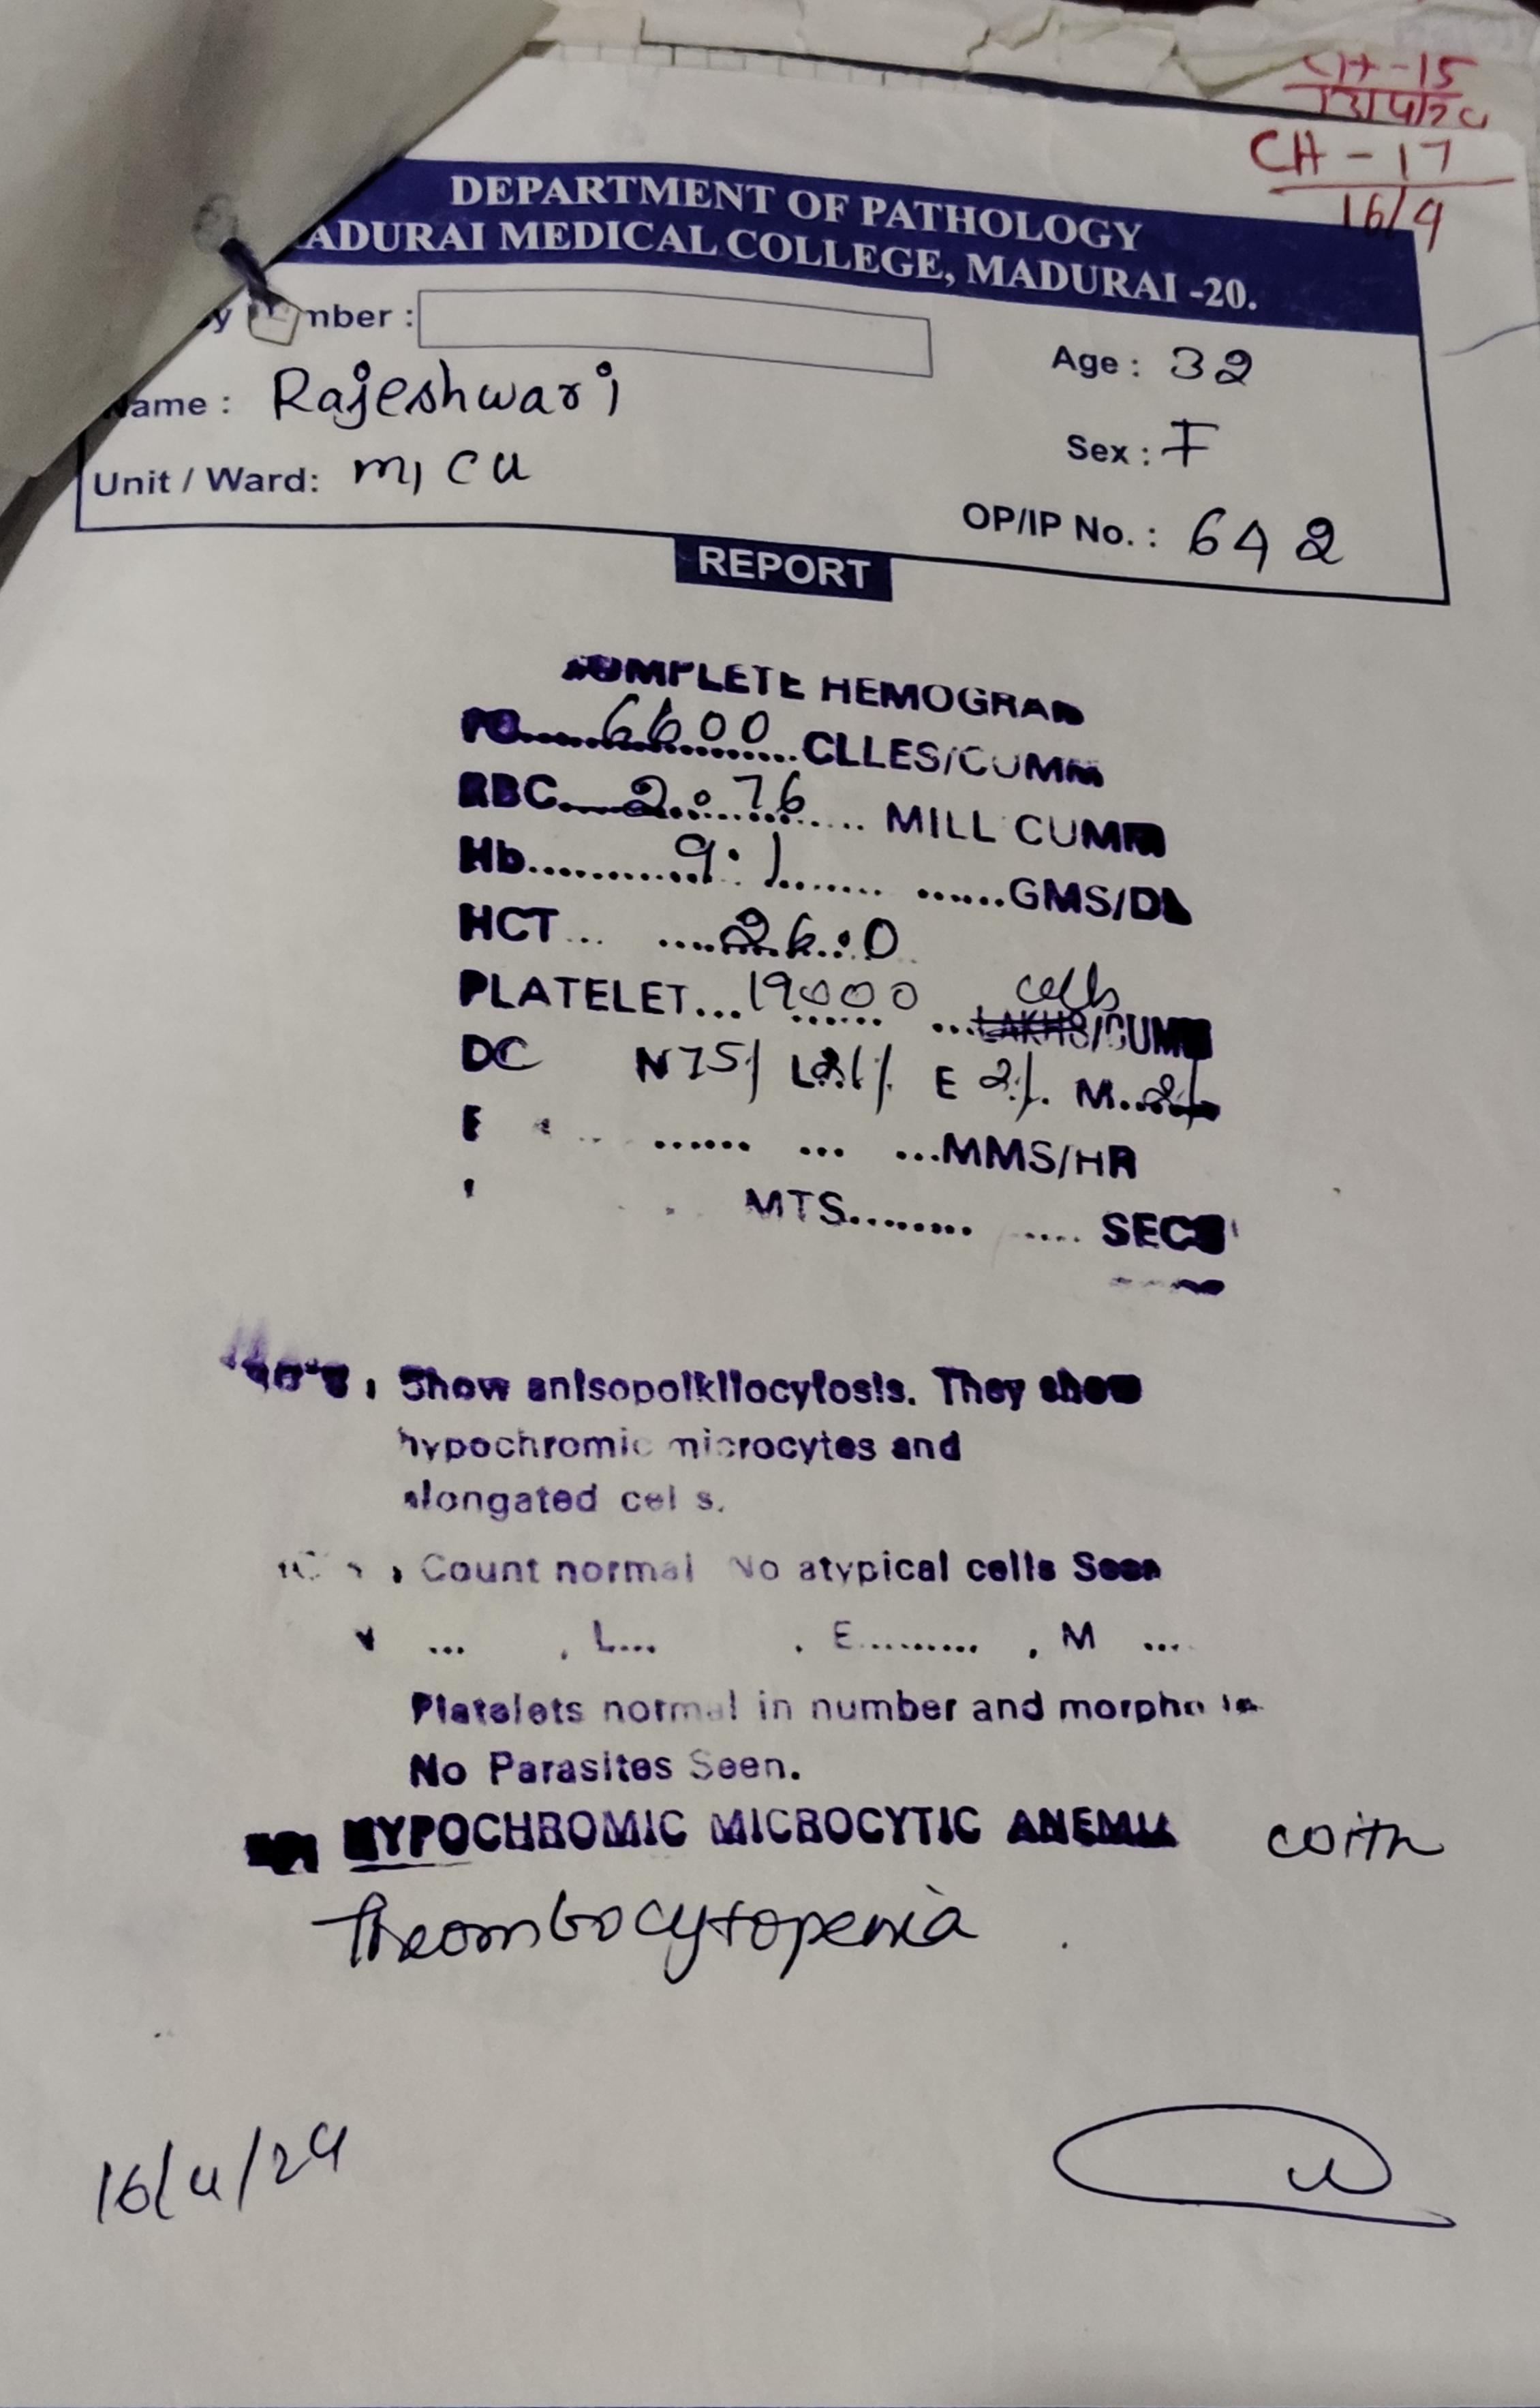 CH-15
13/4/24
CH-17
16/4
DEPARTMENT OF PATHOLOGY
ADURAI MEDICAL COLLEGE, MADURAI -20.
mber :
Age : 32
ame : Rajeshwari
Sex : F
Unit / Ward: MICU
OP/IP No. : 642
REPORT
OMPLETE HEMOGRA
6600 CLLES/CUMM
RBC 2.76 MILL CUMM
Hb 9.1 GMS/DL
HCT 26.0
PLATELET 19000 cells LAKHS/CUMM
DC N 75% L 21% E 2% M 2%
MMS/HR
MTS SECS
Show anisopoikilocytosis. They show
hypochromic microcytes and
elongated cel s.
Count normal No atypical cells Seen
L... E......... , M ...
Platelets normal in number and morpho
No Parasites Seen.
HYPOCHROMIC MICROCYTIC ANEMIA with
thrombocytopenia
16/4/24